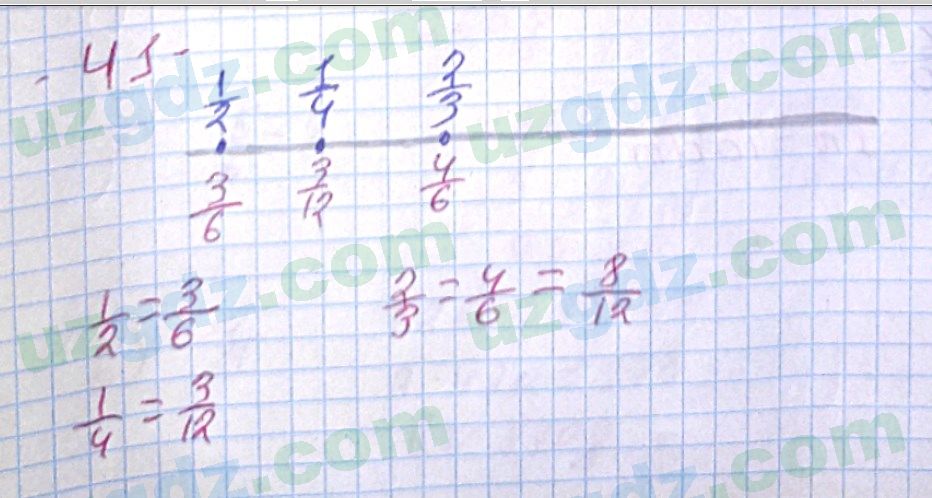 45
1/2 1/4 2/3
3/6 3/12 4/6
1/2 = 3/6 2/3 = 4/6 = 8/12
1/4 = 3/12
uzgdz.com
uzgdz.com
uzgdz.com
uzgdz.com
uzgdz.com
uzgdz.com